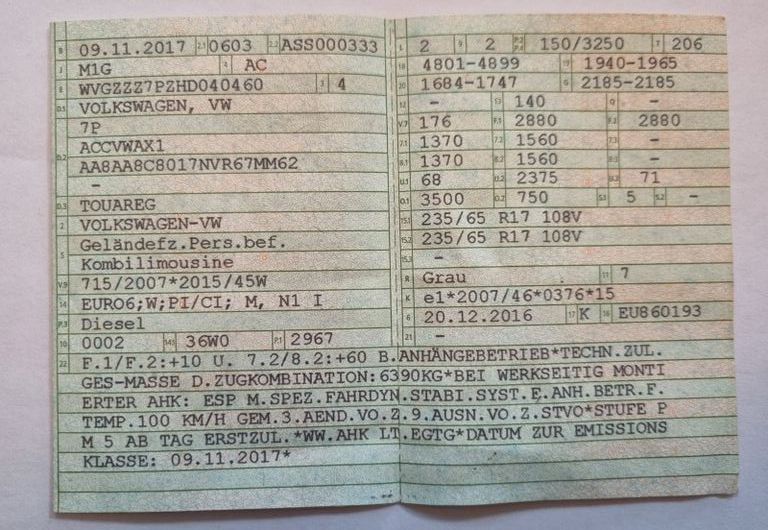 B 09.11.2017 2.1 0603 2.2 ASS000333
J M1G 4 AC
E WVGZZZ7PZHD040460 3 4
D.1 VOLKSWAGEN, VW
7P
D.2 ACCVWAX1
AA8AA8C8017NVR67MM62
-
D.3 TOUAREG
2 VOLKSWAGEN-VW
5 Geländefz.Pers.bef.
Kombilimousine
V.9 715/2007*2015/45W
14 EURO6;W;PI/CI; M, N1 I
P.3 Diesel
10 0002 14.1 36W0 P.1 2967
L 2 9 2 P.2 P.4 150/3250 T 206
18 4801-4899 19 1940-1965
20 1684-1747 G 2185-2185
12 - 13 140 Q -
V.7 176 F.1 2880 F.2 2880
7.1 1370 7.2 1560 7.3 -
8.1 1370 8.2 1560 8.3 -
U.1 68 U.2 2375 U.3 71
O.1 3500 O.2 750 S.1 5 S.2 -
15.1 235/65 R17 108V
15.2 235/65 R17 108V
15.3 -
R Grau 11 7
K e1*2007/46*0376*15
6 20.12.2016 17 K 16 EU860193
21 -
22 F.1/F.2:+10 U. 7.2/8.2:+60 B.ANHÄNGEBETRIEB*TECHN.ZUL.
GES-MASSE D.ZUGKOMBINATION:6390KG*BEI WERKSEITIG MONTI
ERTER AHK: ESP M.SPEZ.FAHRDYN.STABI.SYST.F.ANH.BETR.F.
TEMP.100 KM/H GEM.3.AEND.VO.Z.9.AUSN.VO.Z.STVO*STUFE P
M 5 AB TAG ERSTZUL.*WW.AHK LT.EGTG*DATUM ZUR EMISSIONS
KLASSE: 09.11.2017*